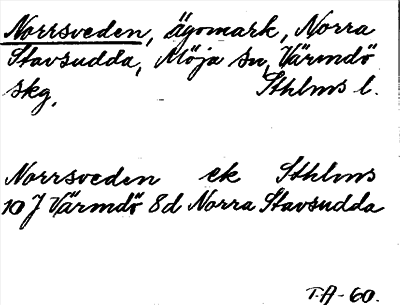 Norrsveden, ägomark, Norra
Stavsudda, Möja sn, Värmdö
skg, Sthlms l.
Norrsveden ek Sthlms
10 J Värmdö 8d Norra Stavsudda
T.A-60.